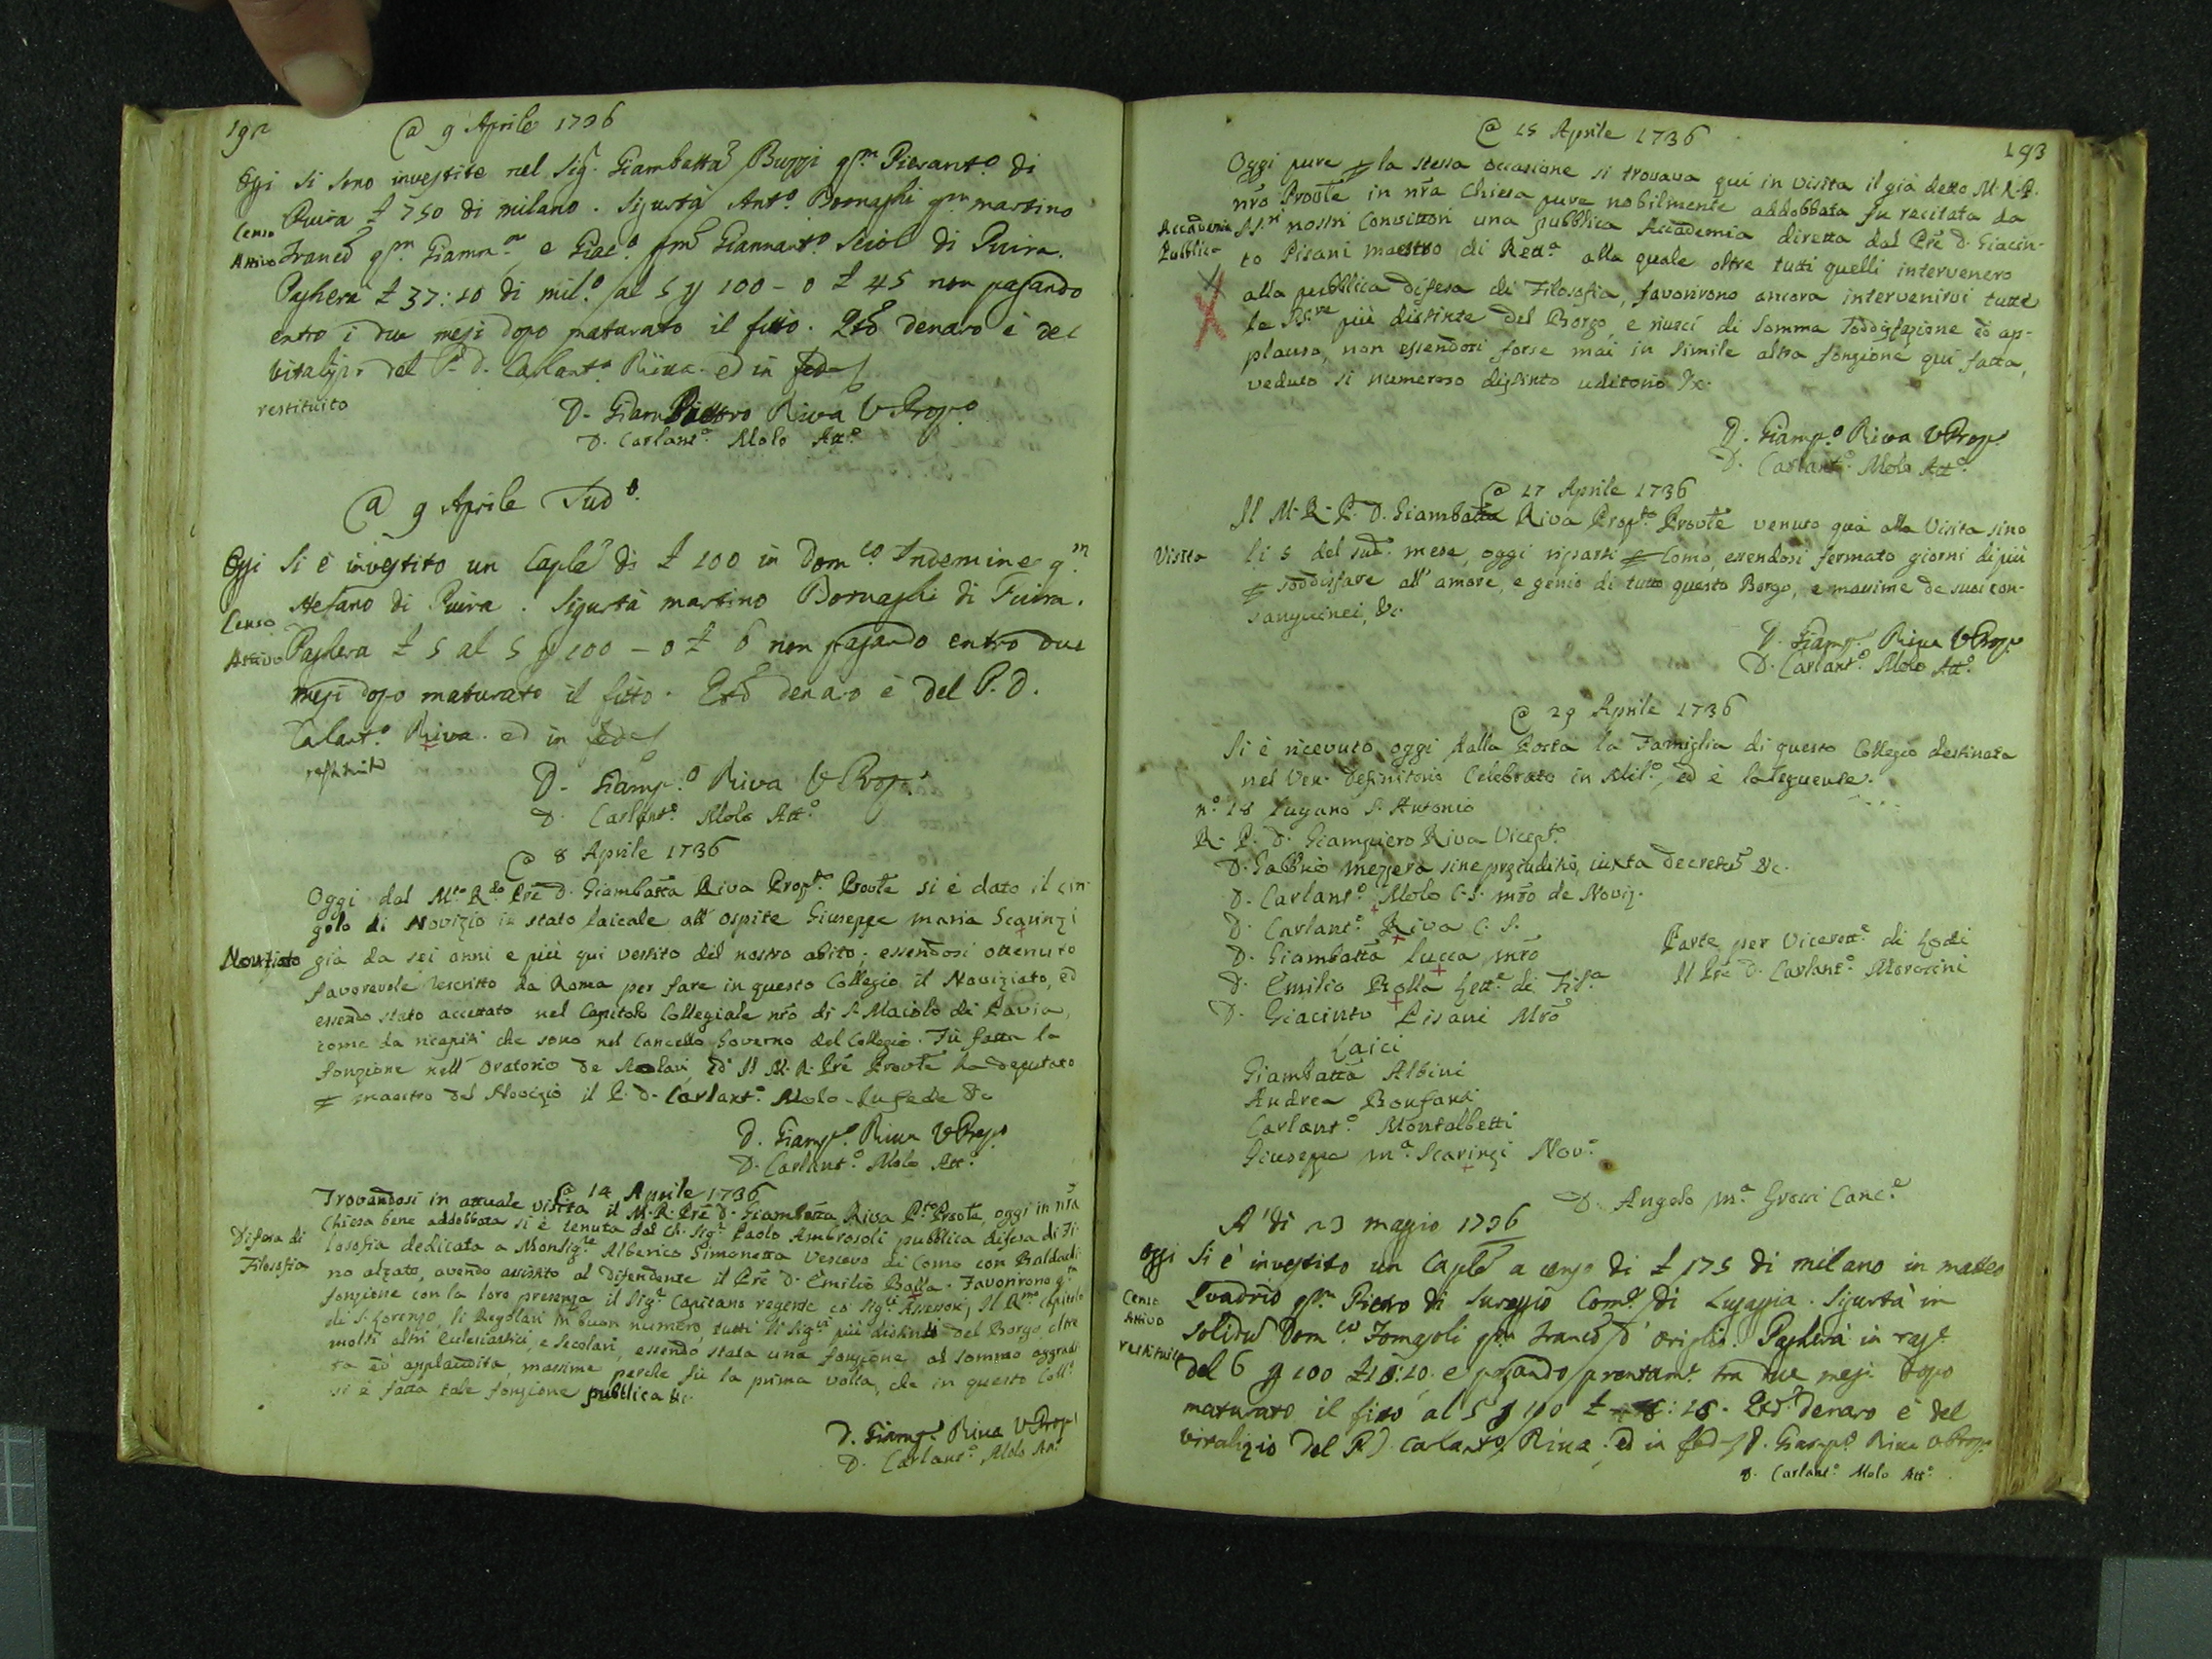 192
@ 9 Aprile 1736
Oggi si sono investite nel Sig. Giambatta Buzzi qm. Pierant.o di
Puira £ 750 di milano. Sigurtà Ant.o Bornaghi qm martino
Censo
Attivo
Franco qm. e Giac.o Giannant.o di Puira.
Pagherà £ 37:10 di mil.o al 5 p 100 - o £ 45 non pagando
entro i due mesi dopo maturato il fitto. Qto denaro è del
vitalizio del P. D. Carlant.o Riva. ed in fede
restituito
D. Giam Pietro Riva V Prop.o
D. Carlant.o Molo Att.o
@ 9 Aprile Sud.o
Oggi si è investito un Caple di £ 100 in Dom.co Indemine q.m
Stefano di Puira. Sigurtà martino Bornaghi di Puira.
Censo
Attivo
Paghera £ 5 al 5 p 100 - o £ 6 non pagando entro due
mesi dopo maturato il fitto. Qto denaro è del P. D.
Carlant.o Riva. ed in fede
restituito
D. Giamp.o Riva V Prop.o
D. Carlant.o Molo Att.o
@ 8 Aprile 1736
Oggi dal M.to R.do Pre D. Giambatta Riva Prop.to Provle si è dato il cin-
golo di Novizio in stato laicale all' ospite Giuseppe maria Scarinzi
Noviziato
già da sei anni e più qui vestito del nostro abito; essendosi ottenuto
favorevole rescritto da Roma per fare in questo Collegio il Noviziato, ed
essendo stato accettato nel Capitolo Collegiale nro di S. Maiolo di Pavia,
come da ricapiti che sono nel Cancello Governo del Collegio. Fù fatta la
fonzione nell' Oratorio de Scolari, ed Il M. R. Pre Provle ha deputato
p maestro del Novizio il P. D. Carlant.o Molo. In fede &c
D. Giamp.o Riva V Prop.o
D. Carlant.o Molo Att.o
@ 14 Aprile 1736
Trovandosi in attuale visita il M. R. Pre D. Giambatta Riva P.to Provle, oggi in nra
Chiesa bene addobbata si è tenuta dal Ch. Sig.r Paolo Ambrosoli pubblica difesa di Fi-
Difesa di
Filosofia
losofia dedicata a Monsig.re Alberico Simonetta Vescovo di Como con Baldachi-
no alzato, avendo assistito al difendente il Pre D. Emilio Bolla. Favorirono q.ta
fonzione con la loro presenza il Sig.r Capitano regente co' Sig.ri Assessori, Il R.mo Capitolo
di S. Lorenzo, li Regolari in buon numero, tutti li Sig.ri più distinti del Borgo, oltre
molti altri Eclesiastici, e Secolari, essendo stata una fonzione al sommo aggradi-
ta ed applaudita, massime perche fù la prima volta, che in questo Coll.o
si è fatta tale fonzione pubblica &c.
D. Giamp.o Riva V Prop.o
D. Carlant.o Molo Att.o
193
@ 15 Aprile 1736
Oggi pure p la stessa occasione si trovava qui in visita il già detto M. R. P.
nro Provle in nra Chiesa pure nobilmente addobbata fu recitata da
Accademia
Pubblica
SS.ri nostri Convittori una pubblica Accademia diretta dal Pre D. Giacin-
to Pisani maestro di Rett.a alla quale oltre tutti quelli intervenero
alla pubblica difesa di Filosofia, favorirono ancora intervenirvi tutte
le SS.re più distinte del Borgo, e riuscì di somma soddisfazione ed ap-
plauso, non essendosi forse mai in simile altra fonzione qui fatta,
veduto si numeroso distinto uditorio &c.
D. Giamp.o Riva V Prop.o
D. Carlant.o Molo Att.o
@ 17 Aprile 1736
Il M. R. P. D. Giambatta Riva Prop.to Provle venuto quà alla Visita sino
Visita
li 5 del sud. mese, oggi riparti p Como, essendosi fermato giorni di più
p soddisfare all' amore, e genio di tutto questo Borgo, e massime de suoi con-
sanguinei, &c.
D. Giamp.o Riva V Prop.o
D. Carlant.o Molo Att.o
@ 29 Aprile 1736
Si è ricevuto oggi dalla Posta la Famiglia di questo Collegio destinata
nel Ven. Definitorio Celebrato in Mil.o, ed è la seguente.
n.o 18 Lugano S. Antonio
R. P. D. Giampiero Riva Vicep.to
D. Gabrio mezzera sine prejudicio, iuxta decretum &c.
D. Carlant.o Molo C. S. mro de Noviz.
D. Carlant.o Riva C. S.
D. Giambatta Lucca mro
D. Emilio Bolla Lett.e di Fis.a
D. Giacinto Pisani Mro
Parte per Vicerett.e di Lodi
Il Pre D. Carlant.o Morosini
Laici
Giambatta Albini
Andrea Bonfanti
Carlant.o Montalbetti
Giuseppe m.a Scarinzi Nov.o
D. Angelo m.a Grossi Canc.e
A' di 23 maggio 1736
Oggi si è investito un Caple a censo di £ 175 di milano in matteo
Censo
Attivo
Quadrio qm. Pietro di Sureggio Com.e di Lugaggia. Sigurtà in
solidu Dom.co Fomasoli qm Franco d' origlio. Pagherà in rag.e
restituito
del 6 p 100 £ 10:10. e pagando prontam.e tra due mesi dopo
maturato il fitto al 5 p 100 £ 8:15. Qto denaro è del
vitalizio del P. D. Carlant.o Riva. ed in fede D. Giamp.o Riva V Prop.o
D. Carlant.o Molo Att.o